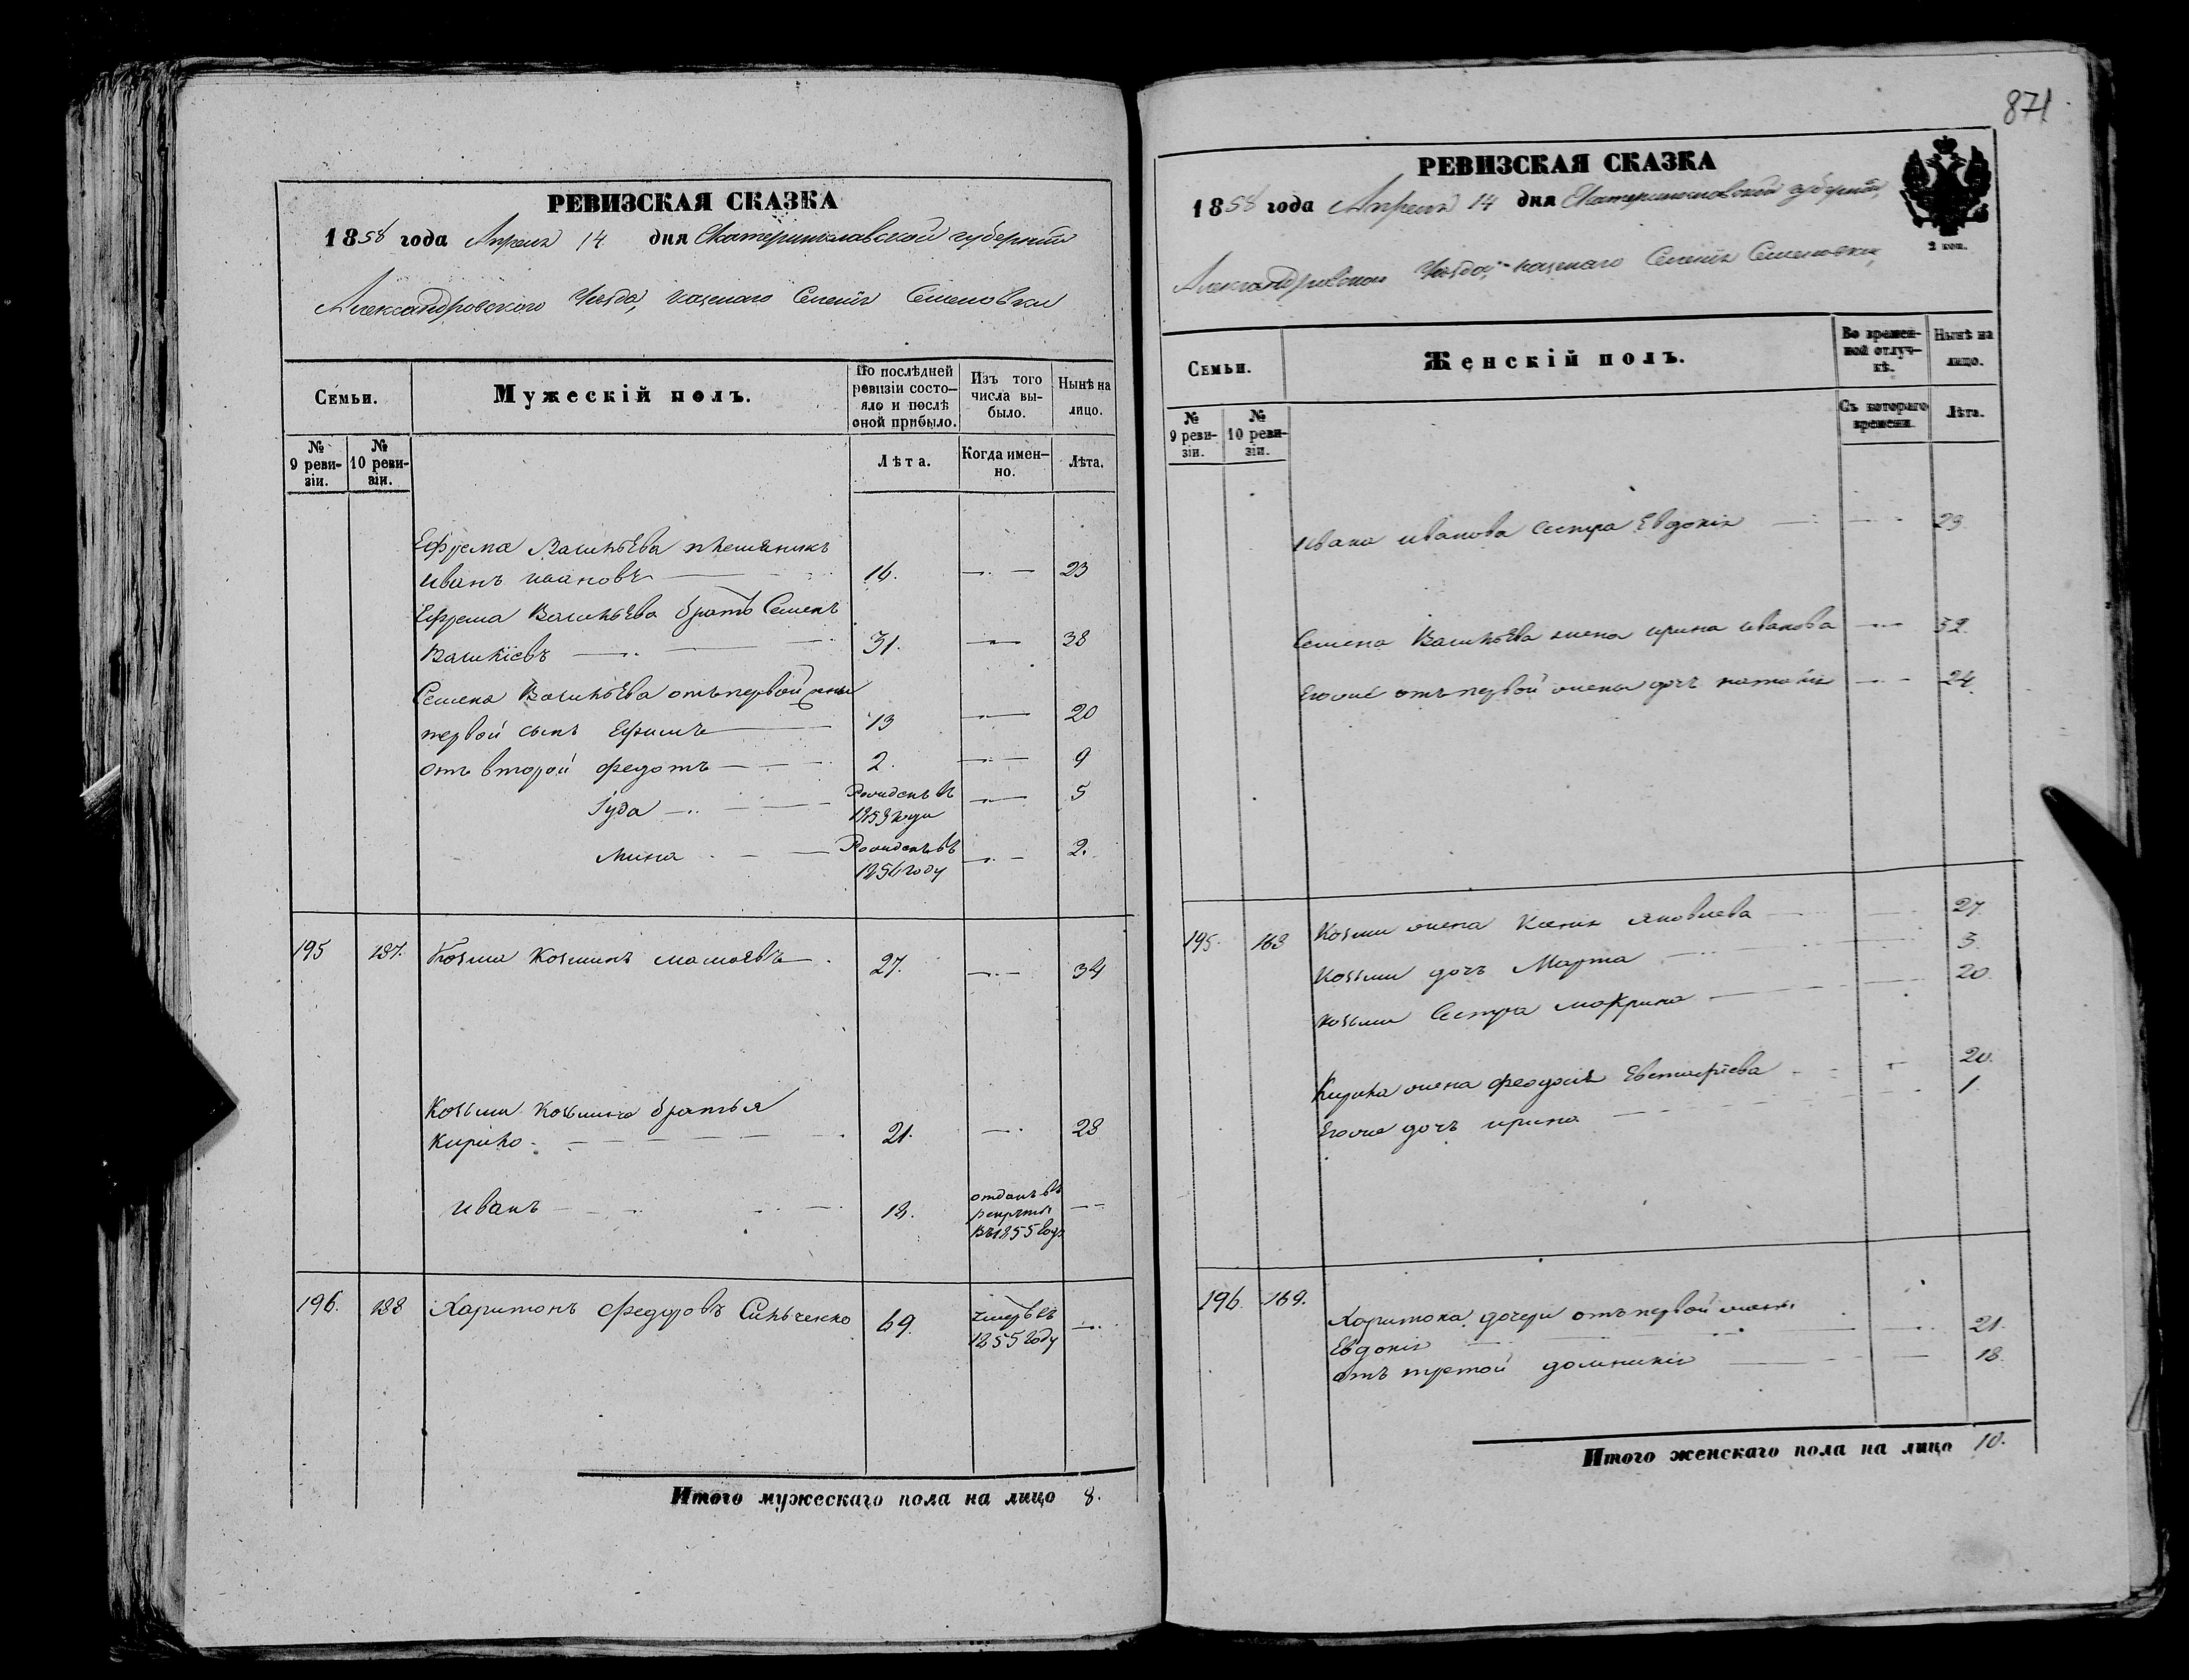 РЕВИЗСКАЯ СКАЗКА
1858 года Апреля 14 дня Екатеринославской губернии
Александровского Уезда, казенаго Селенія Семеновки
Семьи.
Мужескій полъ.
По послѣдней ревизіи состо-
яло и послѣ оной прибыло.
Изъ того числа вы-
было.
Нынѣ на лицо.
№ 9 реви-
зіи.
№ 10 реви-
зіи.
Лѣта.
Когда имен-
но.
Лѣта.
Ефрема Васильева племяникъ
Иванъ Ивановъ 16. 23
Ефрема Васильева братъ Семенъ
Васильевъ 31. 38
Семена Васильева отъ первой жены
первой сынъ Ефимъ 13 20
отъ второй Федотъ 2. 9
Іуда Рожденъ въ 1853 году 5
Мина Рожденъ въ 1856 году 2.
195 187. Козма Козминъ 27. 34
Козьми Козьмина братья
Кирико 21. 28
Иванъ 18. отданъ въ рекруты въ 1855 году
196. 188 Харитонъ Федоровъ Синьченко 69. умеръ въ 1855 году
Итого мужескаго пола на лицо 8.
871
РЕВИЗСКАЯ СКАЗКА
1858 года Апреля 14 дня Екатеринославской губерніи,
2 коп.
Александровского Уезда, казенаго Селенія Семеновки,
Семьи.
Женскій полъ.
Во времен-
ной отлуч-
кѣ.
Нынѣ на лицо.
№ 9 реви-
зіи.
№ 10 реви-
зіи.
Съ котораго времени.
Лѣта.
Ивана Иванова сестра Евдокія 23.
Семена Васильева жена Ирина Иванова 32.
Егоже отъ первой жены дочь Наталія 24.
195. 168 Козьми жена Ксенія Яковлева 27.
Козьми дочь Марта 3.
Козьми Сестра Макрина 20.
Кирика жена Феодосія 20.
Егоже дочь Ирина 1.
196. 169. Харитона дочери отъ первой жены
Евдокія 21.
отъ третой Домникія 18.
Итого женскаго пола на лицо 10.